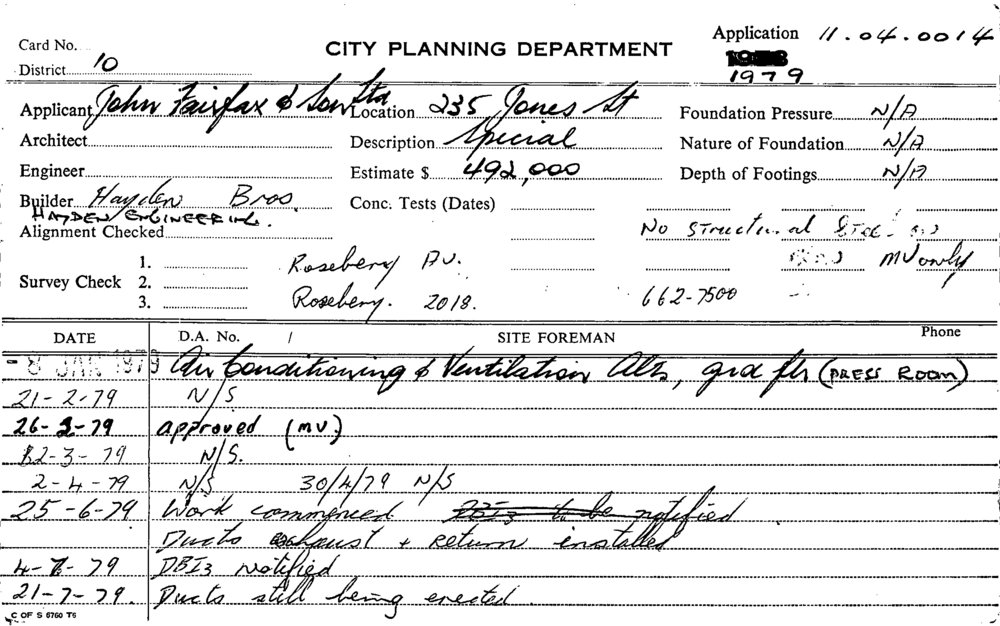 Card No.
CITY PLANNING DEPARTMENT
Application 11.04.0014
District 10
1979
Applicant John Fairfax & Sons Ltd Location 235 Jones St Foundation Pressure N/A
Architect Description Special Nature of Foundation N/A
Engineer Estimate $ 492,000 Depth of Footings N/A
Builder Hayden Bros. Conc. Tests (Dates)
HAYDEN ENGINEERING.
Alignment Checked No structural
MV only
1. Rosebery Av.
Survey Check 2.
3. Rosebery. 2018. 662-7500
DATE D.A. No. / SITE FOREMAN Phone
- 8 JAN 1979 Air Conditioning & Ventilation Alts, grd flr (PRESS ROOM)
21-2-79 N/S
26-2-79 approved (MV)
12-3-79 N/S.
2-4-79 N/S 30/4/79 N/S
25-6-79 Work commenced DBI3 to be notified
Ducts exhaust + return installed
4-7-79 DBI3 notified
21-7-79. Ducts still being erected.
C OF S 6760 T6